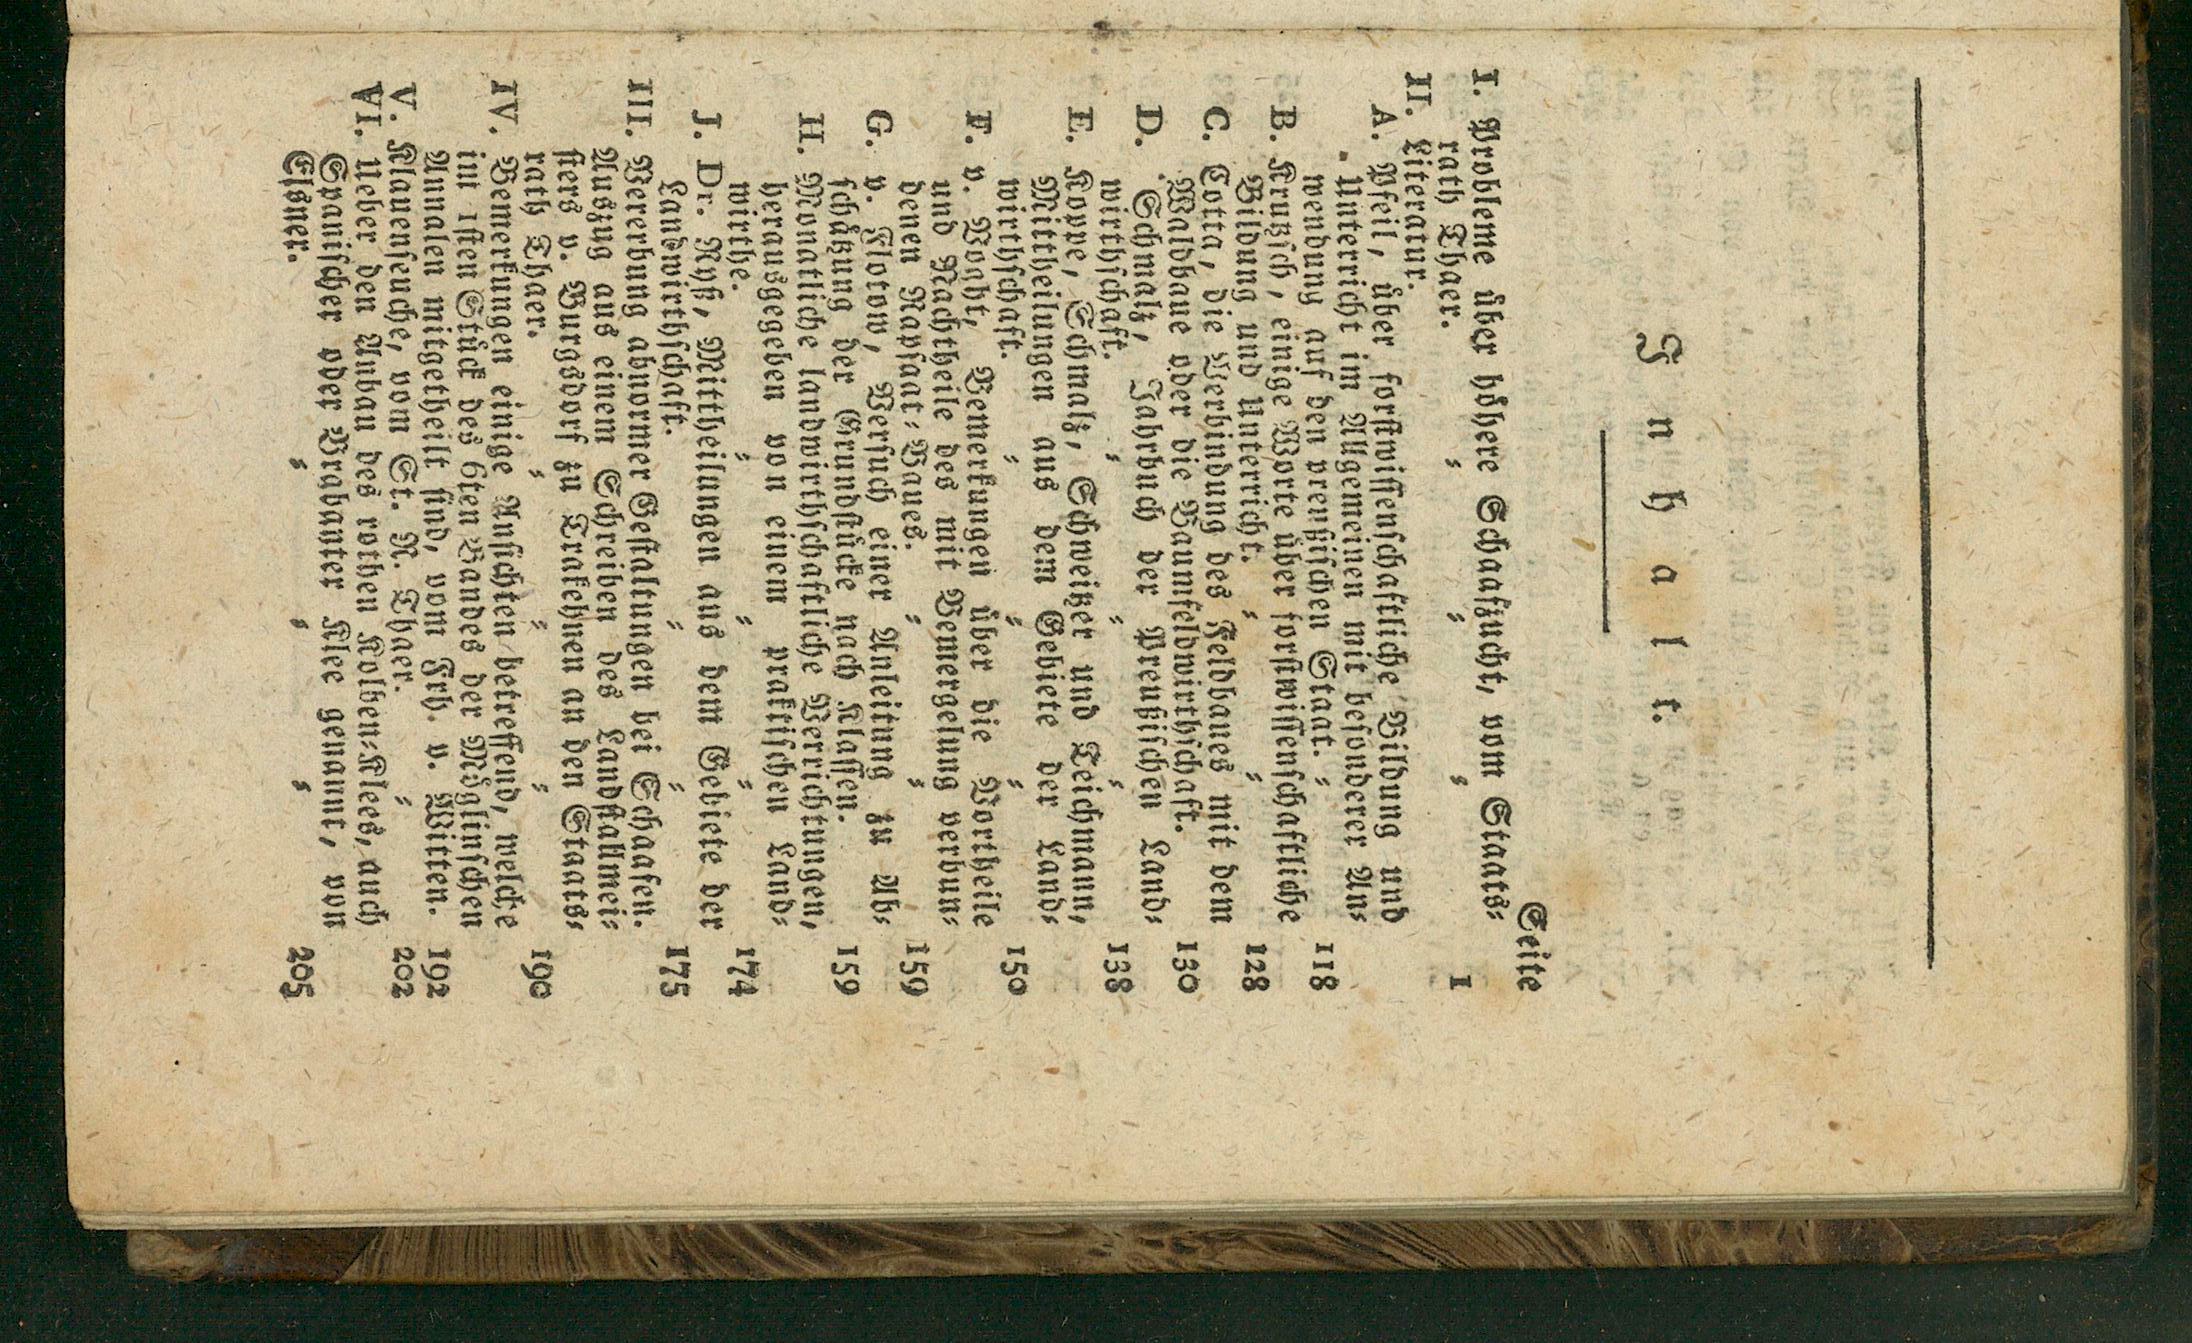 Inhalt.
Seite
I. Probleme über höhere Schaafzucht, vom Staats-
rath Thaer. 1
II. Literatur.
A. Pfeil, über forstwissenschaftliche Bildung und
Unterricht im Allgemeinen mit besonderer An-
wendung auf den preußischen Staat. 118
B. Krutzsch, einige Worte über forstwissenschaftliche
Bildung und Unterricht. 128
C. Cotta, die Verbindung des Feldbaues mit dem
Waldbaue oder die Baumfeldwirthschaft. 130
D. Schmalz, Jahrbuch der Preußischen Land-
wirthschaft. 138
E. Koppe, Schmalz, Schweitzer und Teichmann,
Mittheilungen aus dem Gebiete der Land-
wirthschaft. 150
F. v. Voght, Bemerkungen über die Vortheile
und Nachtheile des mit Bemergelung verbun-
denen Rapsaat-Baues. 159
G. v. Flotow, Versuch einer Anleitung zu Ab-
schätzung der Grundstücke nach Klassen. 159
H. Monatliche landwirthschaftliche Verrichtungen,
herausgegeben von einem praktischen Land-
wirthe. 174
J. Dr. Ryß, Mittheilungen aus dem Gebiete der
Landwirthschaft. 175
III. Vererbung abnormer Gestaltungen bei Schaafen.
Auszug aus einem Schreiben des Landstallmei-
sters v. Burgsdorf zu Trakehnen an den Staats-
rath Thaer. 190
IV. Bemerkungen einige Ansichten betreffend, welche
im 1sten Stück des 6ten Bandes der Möglinschen
Annalen mitgetheilt sind, vom Frh. v. Witten. 192
V. Klauenseuche, vom St. R. Thaer. 202
VI. Ueber den Anbau des rothen Kolben-Klees, auch
Spanischer oder Brabanter Klee genannt, von
Elsner. 205